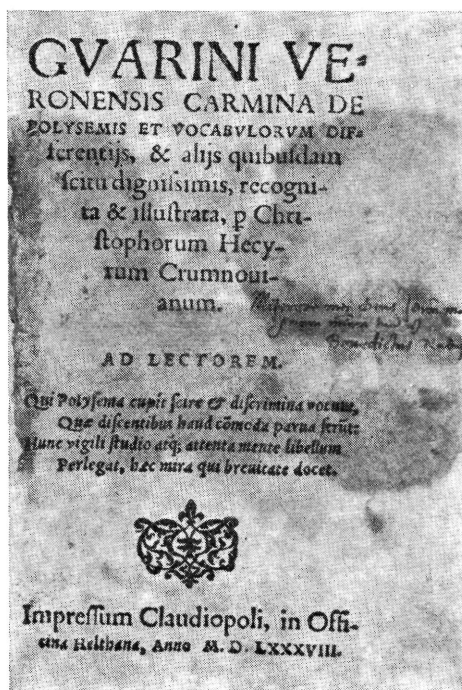 GVARINI VE-
RONENSIS CARMINA DE
POLYSEMIS ET VOCABVLORVM DIF-
ferentijs, & alijs quibusdam
scitu dignissimis, recogni-
ta & illustrata, ꝑ Chri-
stophorum Hecy-
rum Crumnoui-
anum.
AD LECTOREM.
Qui Polysema cupit scire & discrimina vocum,
Quæ discentibus haud cōmoda parua ferūt:
Hunc vigili studio atq; attenta mente libellum
Perlegat, hæc mira qui breuitate docet.
Impressum Claudiopoli, in Offi-
cina Helthana, Anno M. D. LXXXVIII.